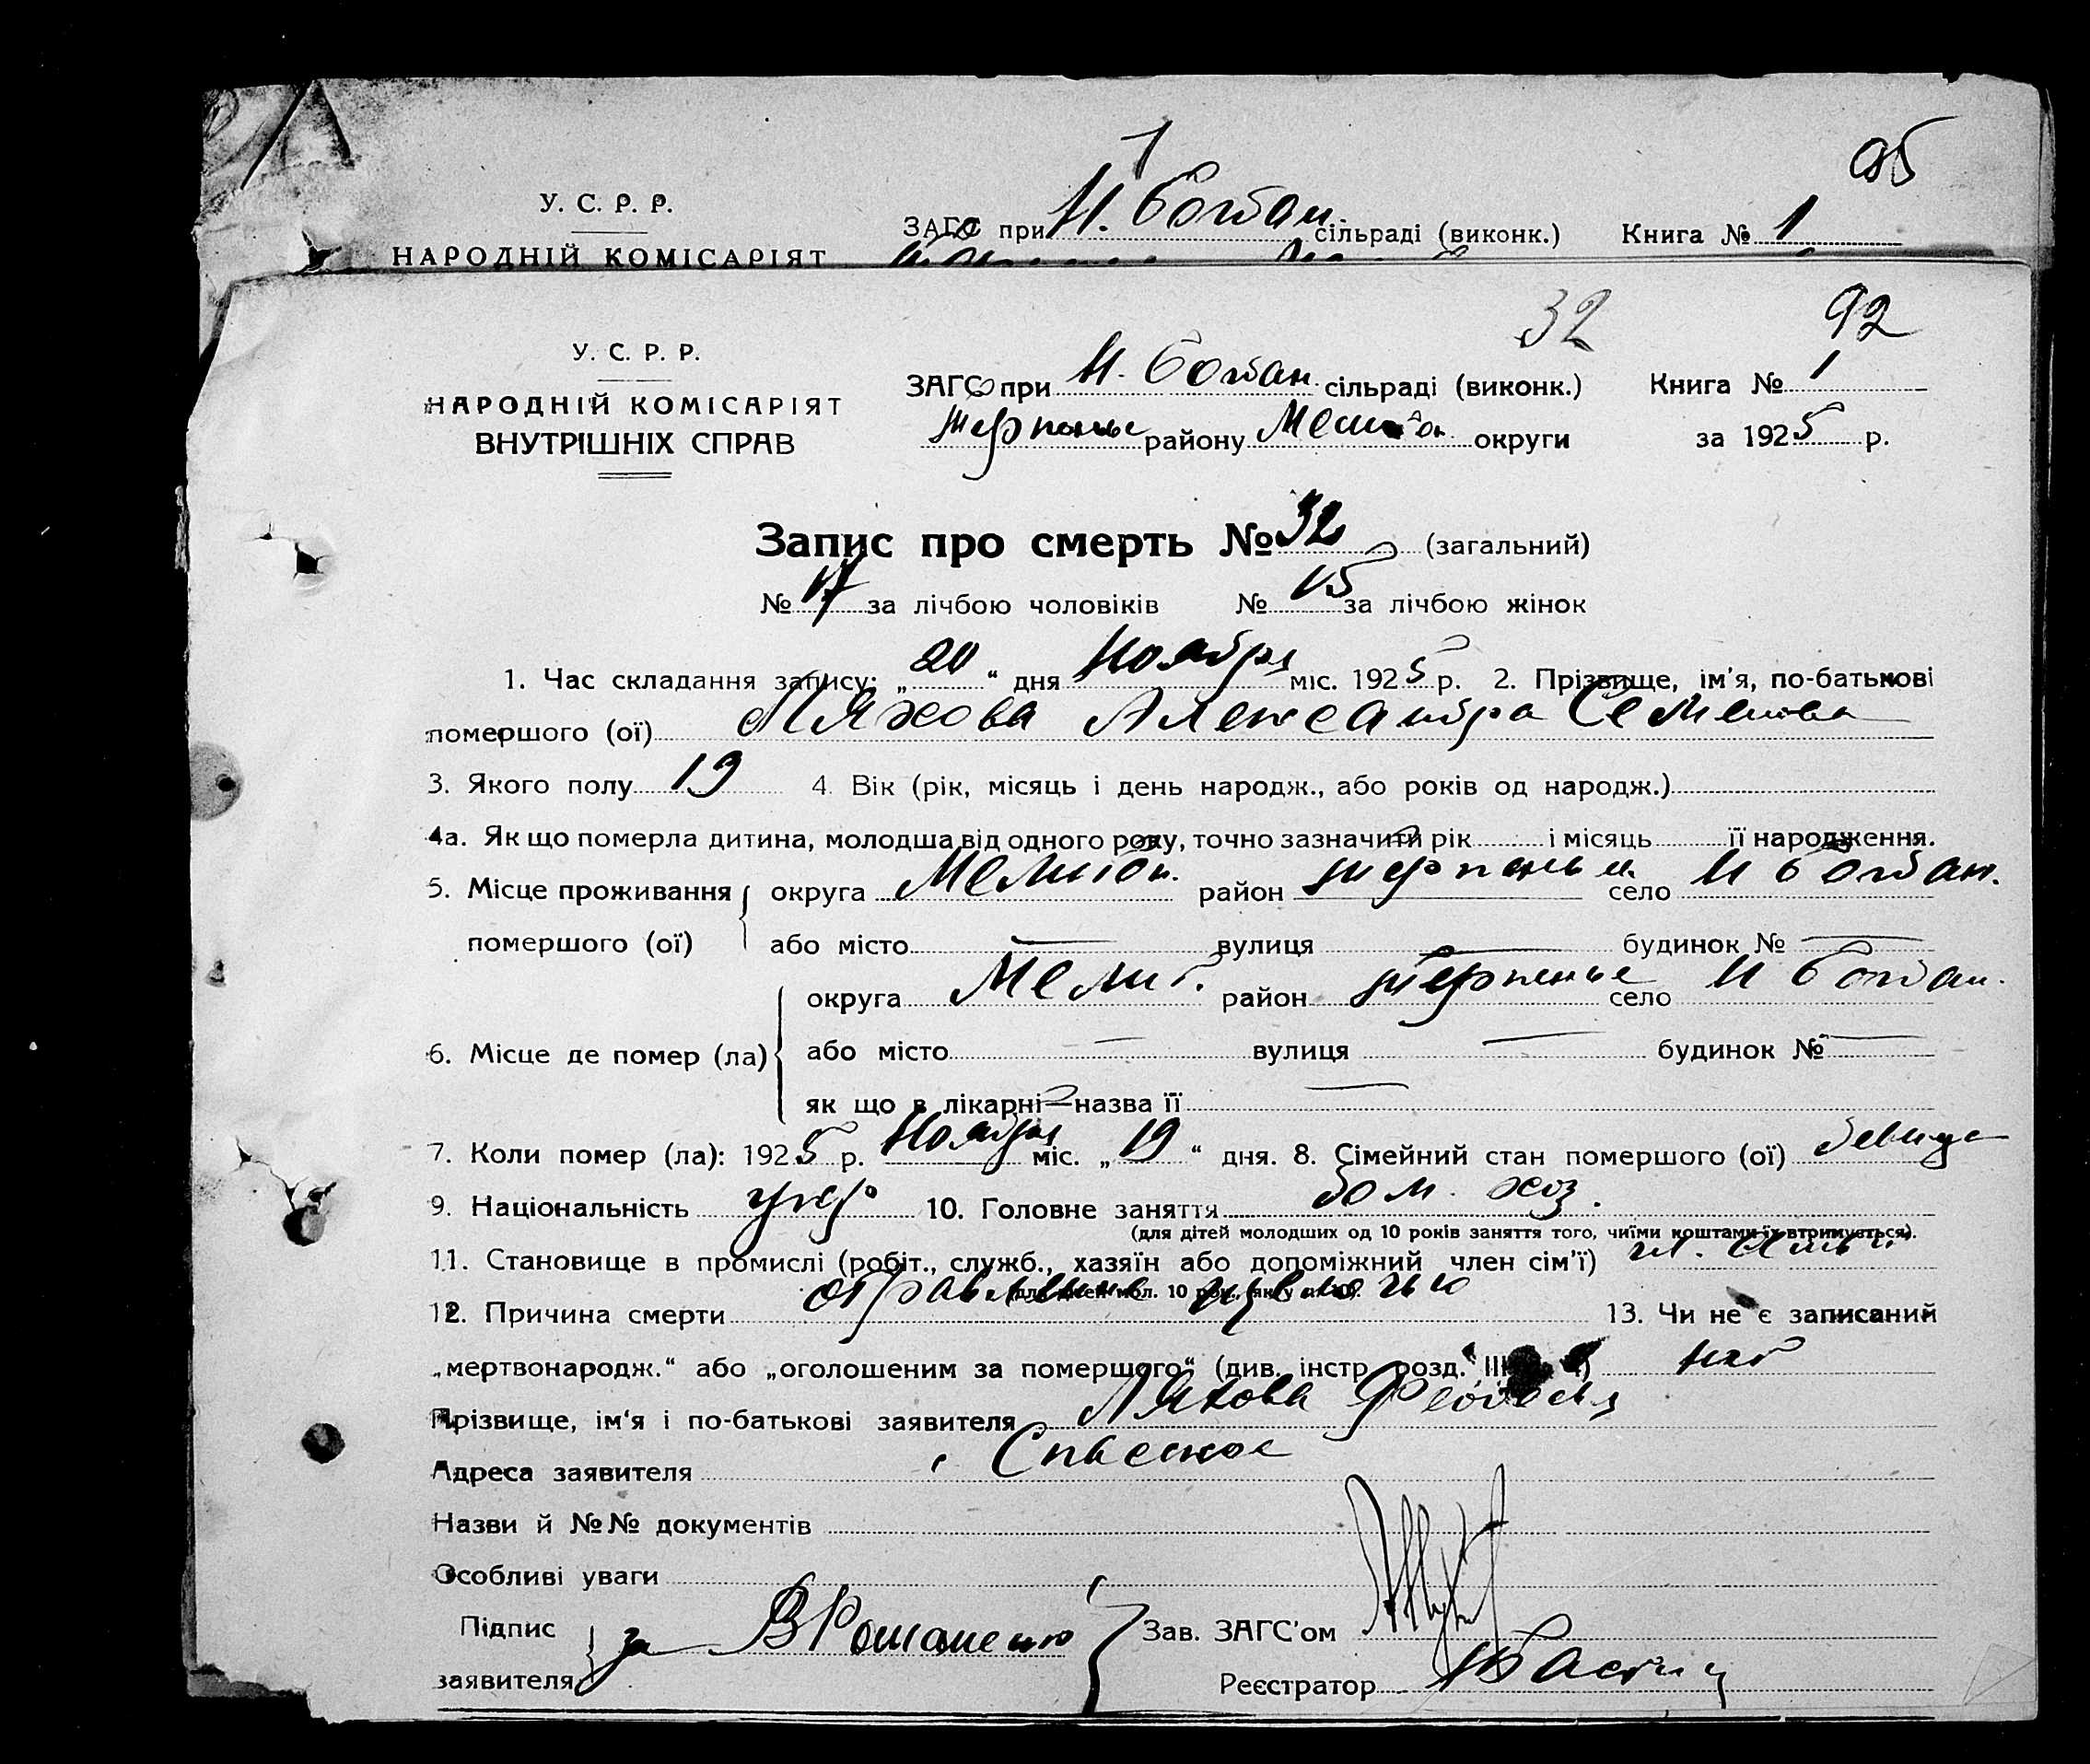 95
У. С. Р. Р.
ЗАГС при Н. Богдан. сільраді (виконк.) Книга № 1
НАРОДНІЙ КОМІСАРІЯТ
32 92
У. С. Р. Р.
ЗАГС при Н. Богдан. сільраді (виконк.) Книга № 1
НАРОДНІЙ КОМІСАРІЯТ
ВНУТРІШНІХ СПРАВ
Терпенье району Мелитоп. округи за 1925 р.
Запис про смерть № 32 (загальний)
№ 17 за лічбою чоловіків № 15 за лічбою жінок
1. Час складання запису: „20“ дня Ноября міс. 1925 р. 2. Прізвище, ім'я, по-батькові
помершого (ої) Ляхова Александра Семенова
3. Якого полу 19 4. Вік (рік, місяць і день народж., або років од народж.)
4а. Як що померла дитина, молодша від одного року, точно зазначити рік і місяць її народження.
5. Місце проживання округа Мелитоп. район село Н Богдан.
помершого (ої) або місто — вулиця — будинок № —
округа Мелит. район Терпенье село Н Богдан.
6. Місце де помер (ла) або місто — вулиця — будинок № —
як що в лікарні—назва її —
7. Коли помер (ла): 1925 р. Ноября міс. „19“ дня. 8. Сімейний стан помершого (ої) девица
9. Національність укр 10. Головне заняття дом. хоз.
(для дітей молодших од 10 років заняття того, чиїми коштами їх втримується).
11. Становище в промислі (робіт., служб., хазяїн або допоміжний член сім'ї) чл. семьи
(для дітей мол. 10 рок., як у п. 10).
12. Причина смерти отравление 13. Чи не є записаний
„мертвонародж.“ або „оголошеним за помершого“ (див. інстр. розд. III нет
Прізвище, ім'я і по-батькові заявителя Ляхова Феодосия
Адреса заявителя с Спасское
Назви й №№ документів
Особливі уваги
Підпис
заявителя за В Романенко
Зав. ЗАГС'ом
Реєстратор